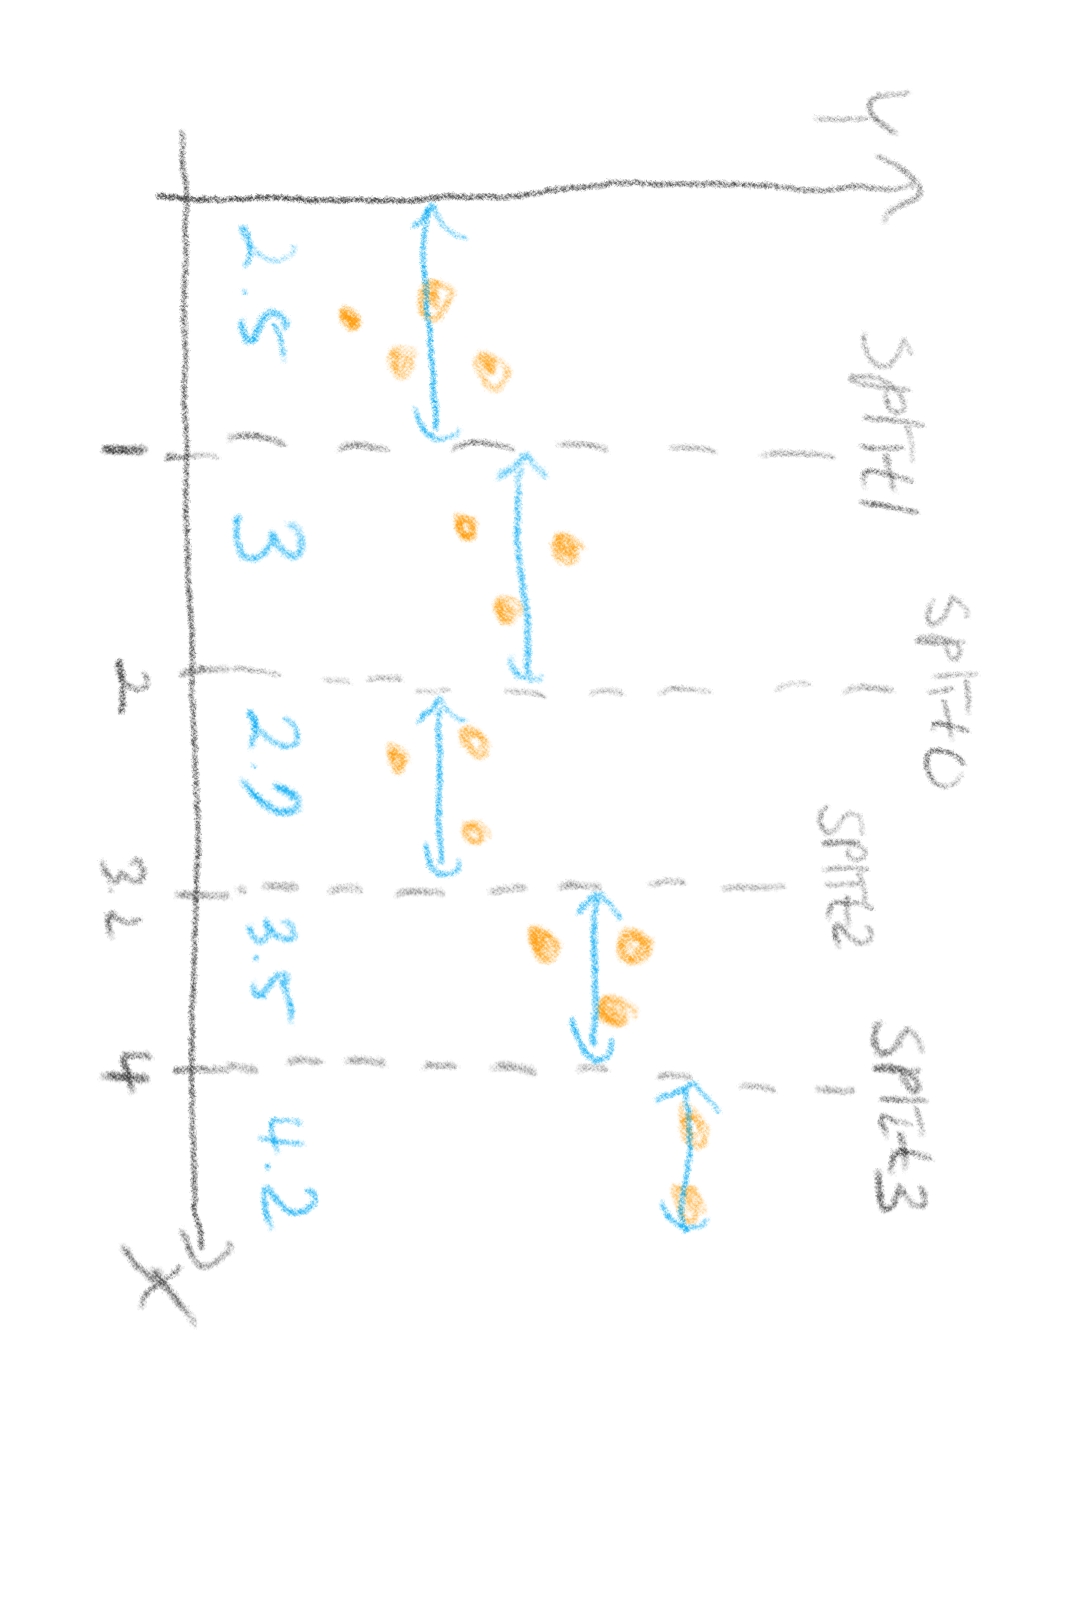 Y
Split1
Split0
Split2
Split3
2.5
3
2.9
3.5
4.2
1
2
3.2
4
X